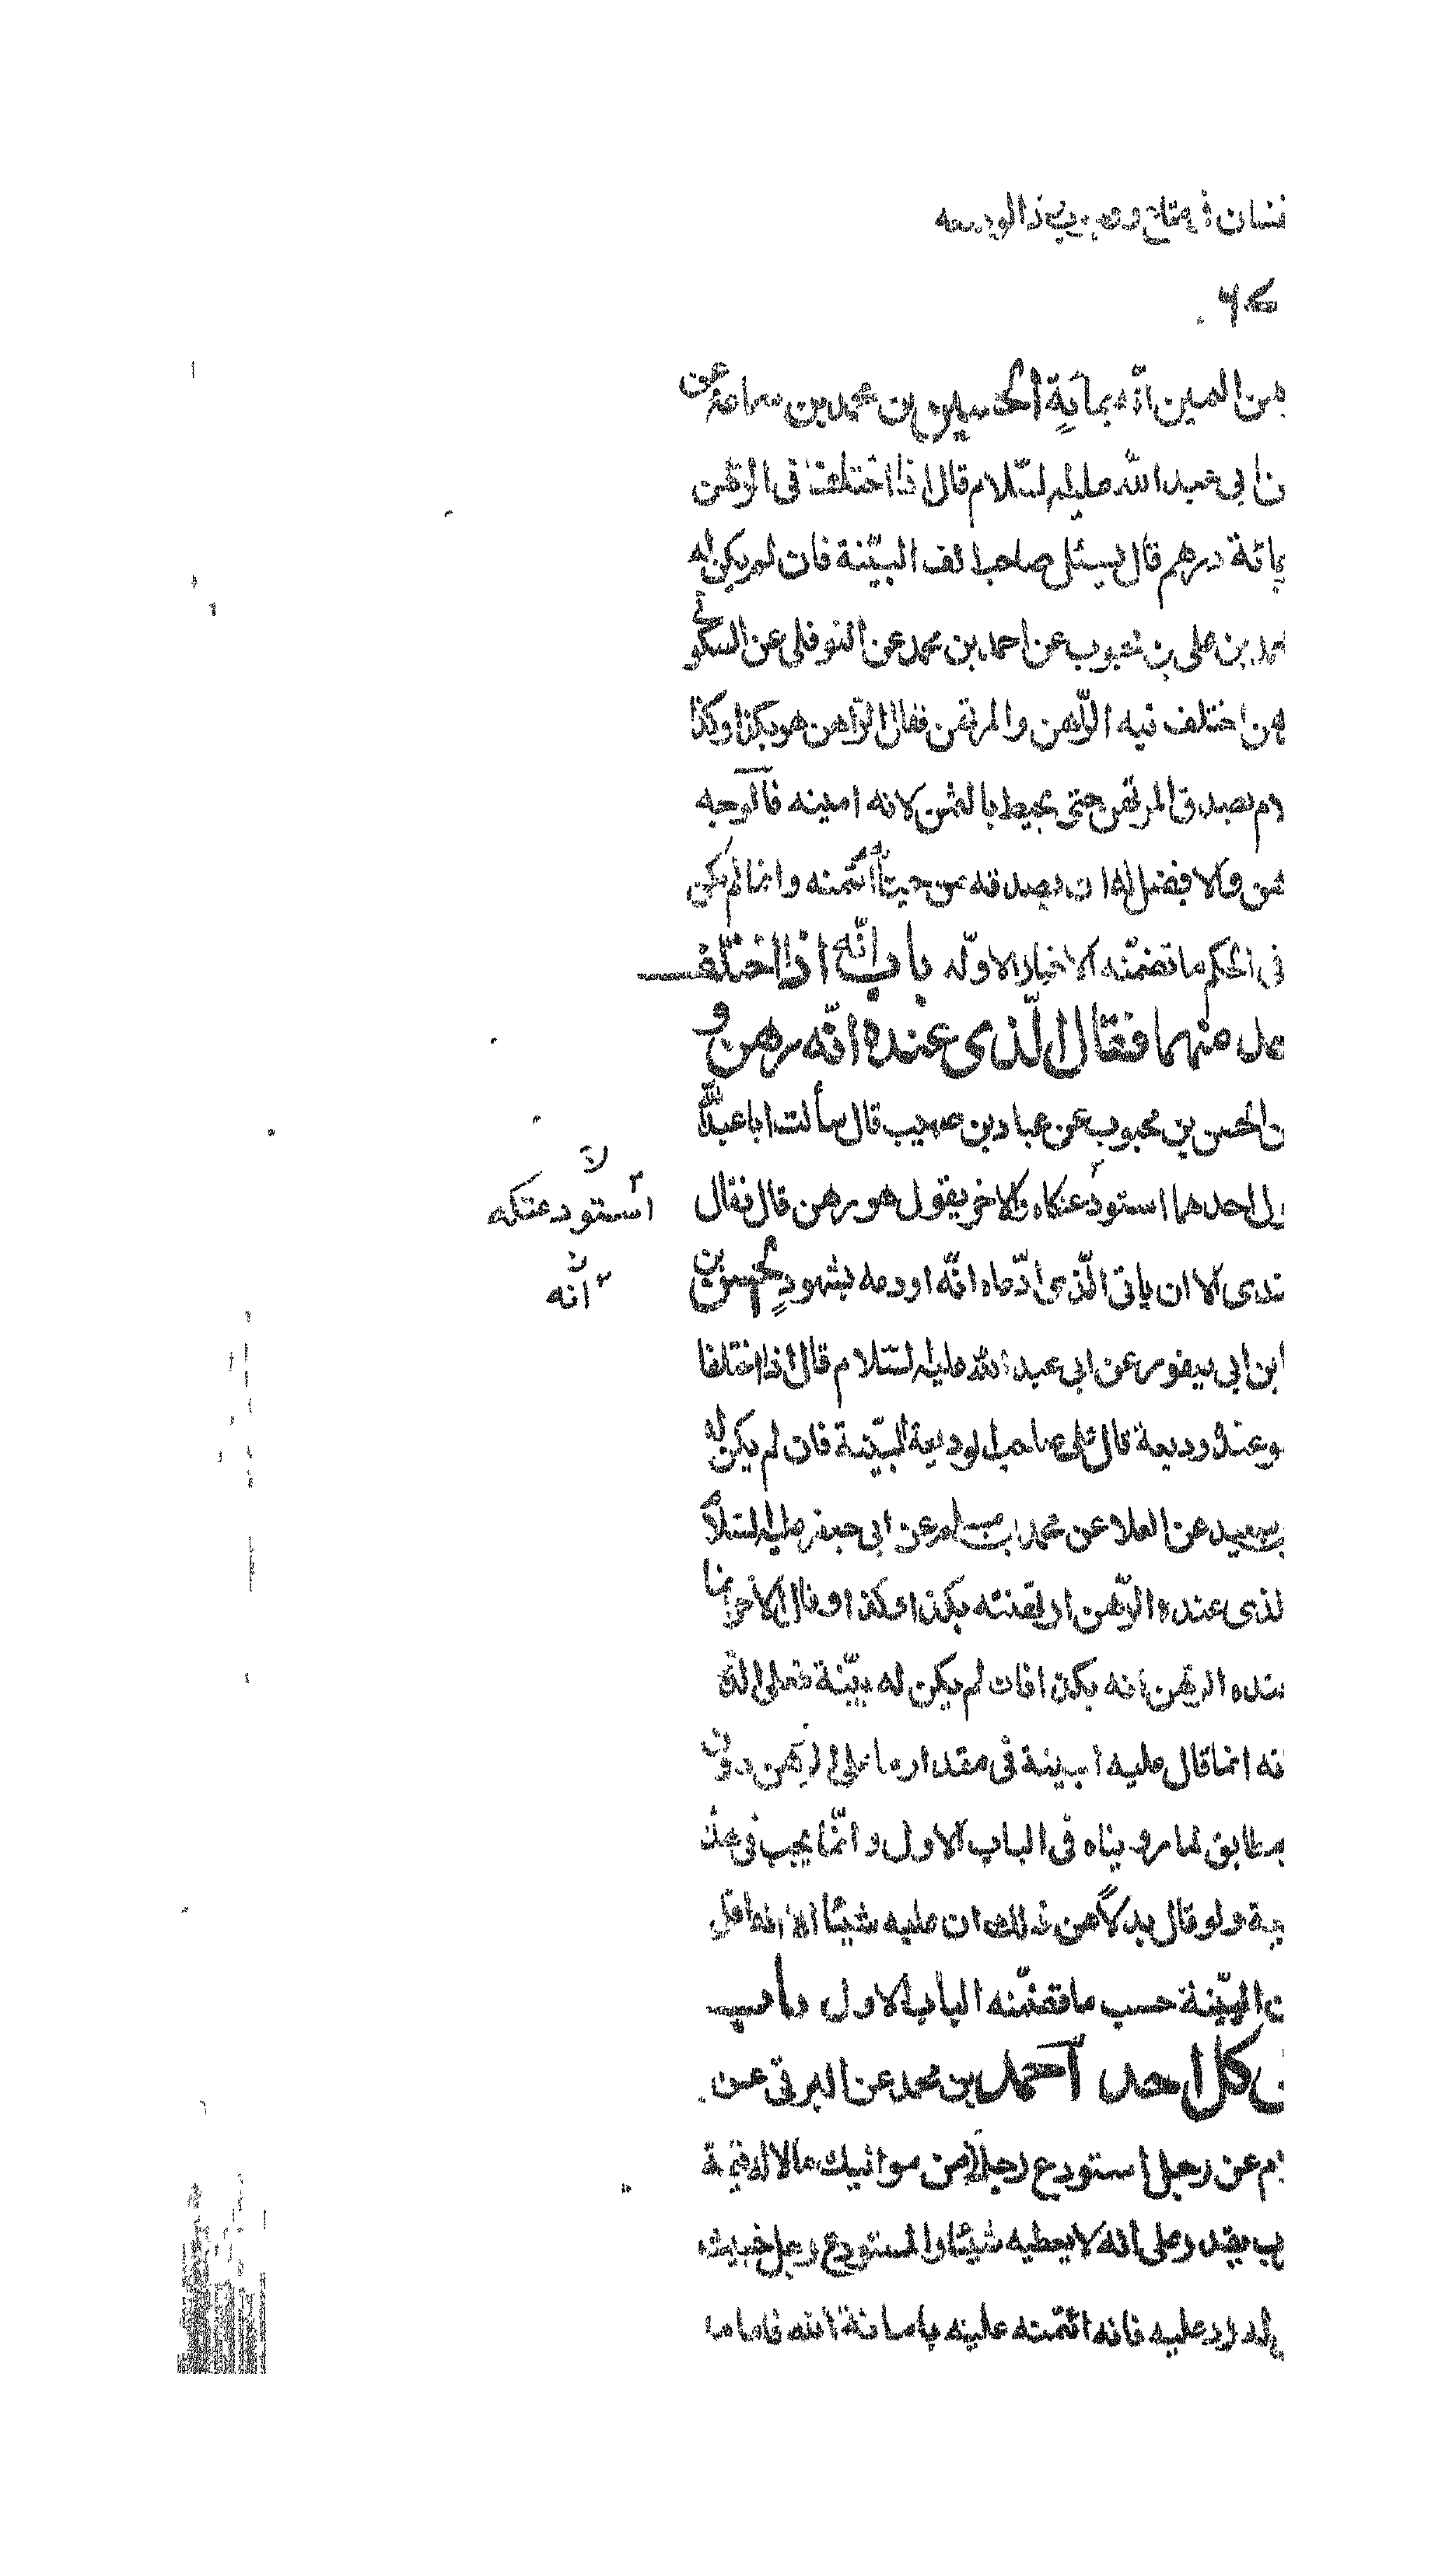 نسان في متاع و هو في يد الوديعه
هن اليمين انه بمائة الحسين بن محمد بن سماعة عن
ن ابي عبد الله عليه السلام قال اذا اختلفا في الرهن
مائة درهم قال يسئل صاحب الالف البينة فان لم يكن له
محمد بن علي بن محبوب عن احمد بن محمد عن النوفلي عن السكوني
هن اختلف فيه الراهن والمرتهن فقال الراهن هو بكذا وكذا
لام يصدق المرتهن حتى يحيط بالثمن لانه امينه فالوجه
هن والافضل له ان يصدقه من حيث ائتمنه وانما لم يكن
في الحكم ما تضمنته الاخبار الاوله باب انه اذا اختلف
حد منهما فقال الذي عنده انه رهن و
ن الحسن بن محبوب عن عباد بن صهيب قال سألت ابا عبد الله
ول احدهما استودعتكاه والاخر يقول هو رهن قال فقال
ندي الا ان ياتي الذي ادعاه انه اودعه بشهود الحسن بن
ابن ابي يعفور عن ابي عبد الله عليه السلام قال اذا اختلفا
هو عندك وديعة قال على صاحب الوديعة البينة فان لم يكن له
بن سعيد عن العلا عن محمد بن مسلم عن ابي جعفر عليه السلام
لذي عنده الرهن ارتهنته بكذا وكذا وقال الاخر انما
عنده الرهن انه بكذا فان لم يكن له بينة فعلى الذي
انه انما قال عليه البينة في مقدار ما على الرهن دون
مطابق لما رويناه في الباب الاول و انما يجب في هذا
ولو قال بدلا من ذلك ان عليه شيئا
ن البينة حسب ما تضمنه الباب الاول باب
ن كل احد احمد بن محمد عن البرقي عن
لام عن رجل استودع رجلا من مواليك مالا له قيمة
يقدر على انه لا يعطيه شيئا والمستودع رجل خبيث
له رد عليه فانه ائتمنه عليه بامانة الله فاما ما
استودعتكه
انه